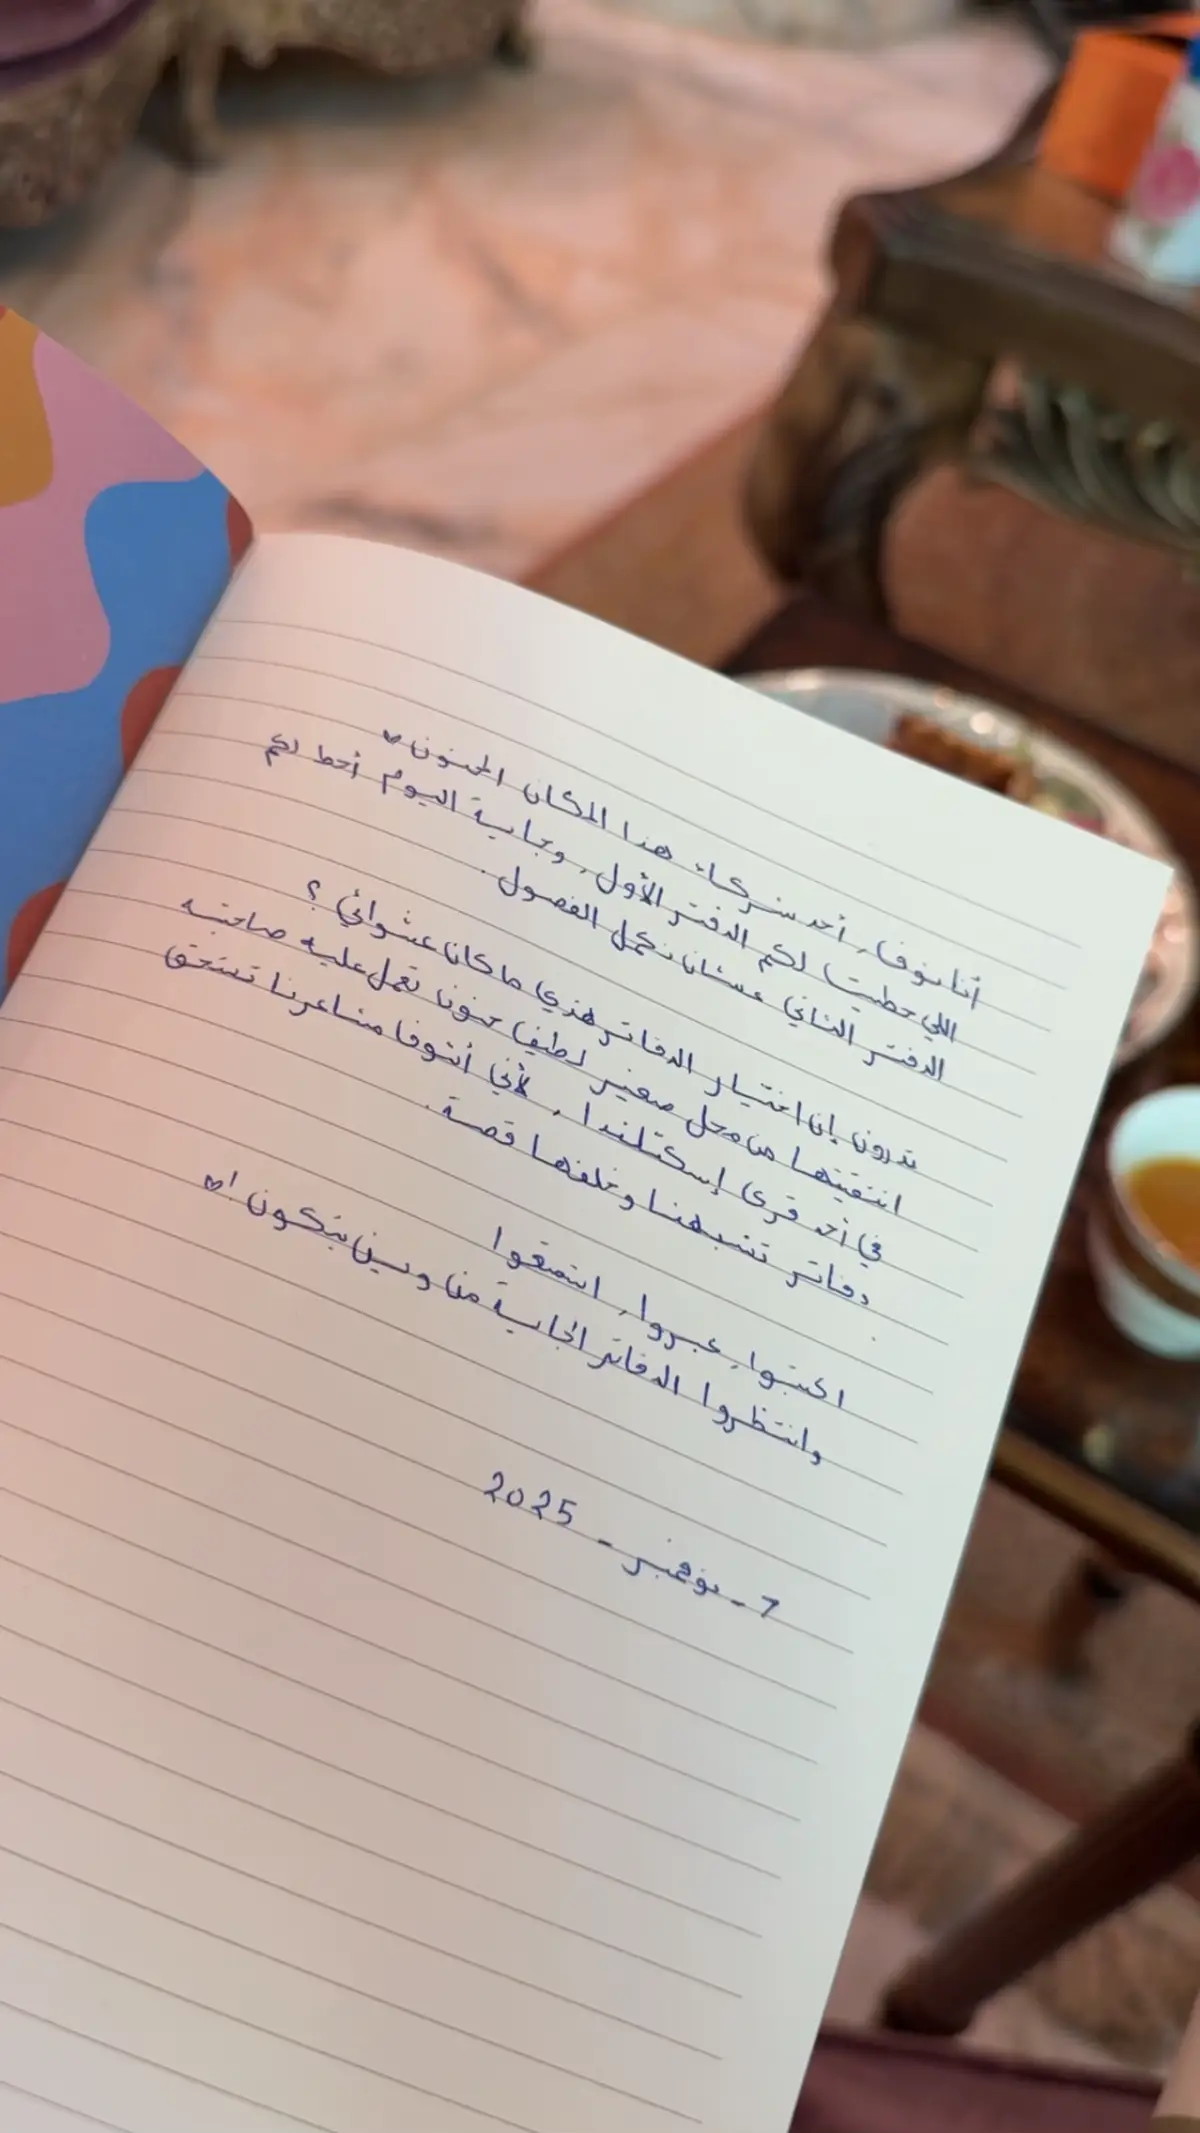 أنا نوفا، أحد شركاء هذا المكان الحنون ♡
اللي حطيت لكم الدفتر الأول، وجاية اليوم أحط لكم
الدفتر الثاني عشان نكمل الفصول.
تدرون إن اختيار الدفاتر هذي ما كان عشوائي؟
انتقيتها من محل صغير لطيف حنون تعمل عليه صاحبته
في أحد قرى إسكتلندا، لأني أشوف مشاعرنا تستحق
دفاتر تشبهنا وخلفها قصة.
اكتبوا، عبروا، استمتعوا
وانتظروا الدفاتر الجاية من وين بتكون! ♡
7 - نوفمبر - 2025